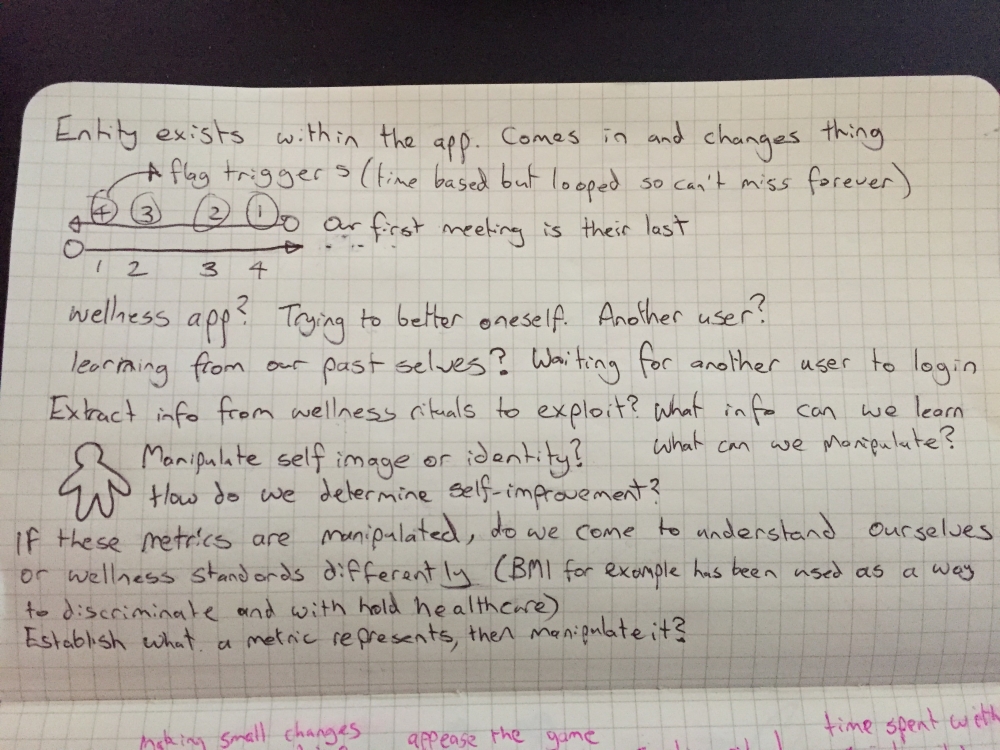 Entity exists within the app. Comes in and changes thing
A flag triggers (time based but looped so can't miss forever)
4 3 2 1
Our first meeting is their last
1 2 3 4
wellness app? Trying to better oneself. Another user?
learning from our past selves? Waiting for another user to login
Extract info from wellness rituals to exploit? What info can we learn
What can we manipulate?
Manipulate self image or identity?
How do we determine self-improvement?
If these metrics are manipulated, do we come to understand ourselves
or wellness standards differently (BMI for example has been used as a way
to discriminate and with hold healthcare)
Establish what a metric represents, then manipulate it?
Making small changes appease the game time spent with